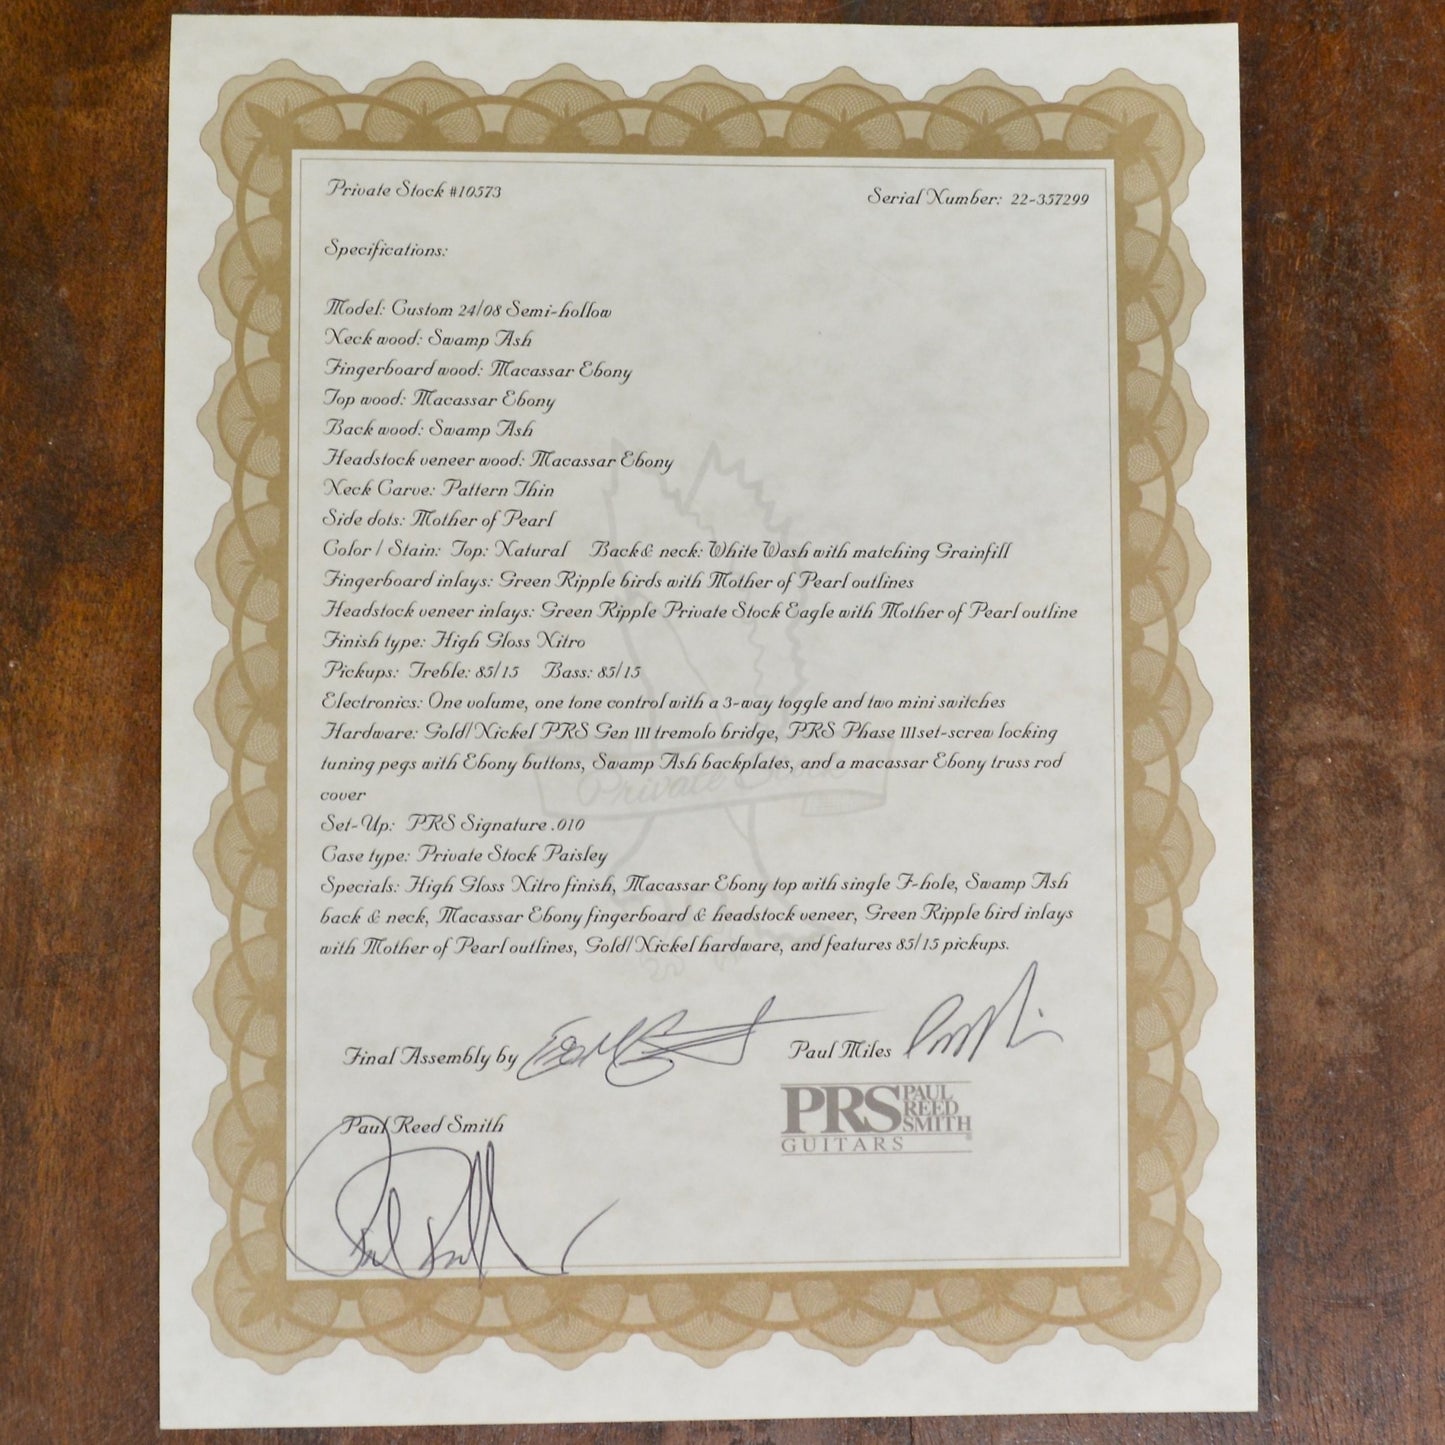 Private Stock #10573
Serial Number: 22-357299
Specifications:
Model: Custom 24/08 Semi-hollow
Neck wood: Swamp Ash
Fingerboard wood: Macassar Ebony
Top wood: Macassar Ebony
Back wood: Swamp Ash
Headstock veneer wood: Macassar Ebony
Neck Carve: Pattern Thin
Side dots: Mother of Pearl
Color / Stain: Top: Natural Back & neck: White Wash with matching Grainfill
Fingerboard inlays: Green Ripple birds with Mother of Pearl outlines
Headstock veneer inlays: Green Ripple Private Stock Eagle with Mother of Pearl outline
Finish type: High Gloss Nitro
Pickups: Treble: 85/15 Bass: 85/15
Electronics: One volume, one tone control with a 3-way toggle and two mini switches
Hardware: Gold/Nickel PRS Gen III tremolo bridge, PRS Phase III set-screw locking
tuning pegs with Ebony buttons, Swamp Ash backplates, and a macassar Ebony truss rod
cover
Set-Up: PRS Signature .010
Case type: Private Stock Paisley
Specials: High Gloss Nitro finish, Macassar Ebony top with single F-hole, Swamp Ash
back & neck, Macassar Ebony fingerboard & headstock veneer, Green Ripple bird inlays
with Mother of Pearl outlines, Gold/Nickel hardware, and features 85/15 pickups.
Private
Final Assembly by
Paul Miles
Paul Reed Smith
PRS PAUL REED SMITH
GUITARS